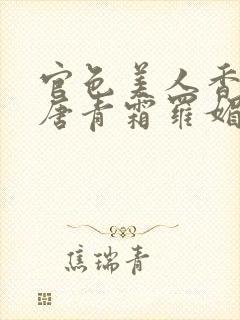 官色美人香
唐青霜罗媚
焦瑞青